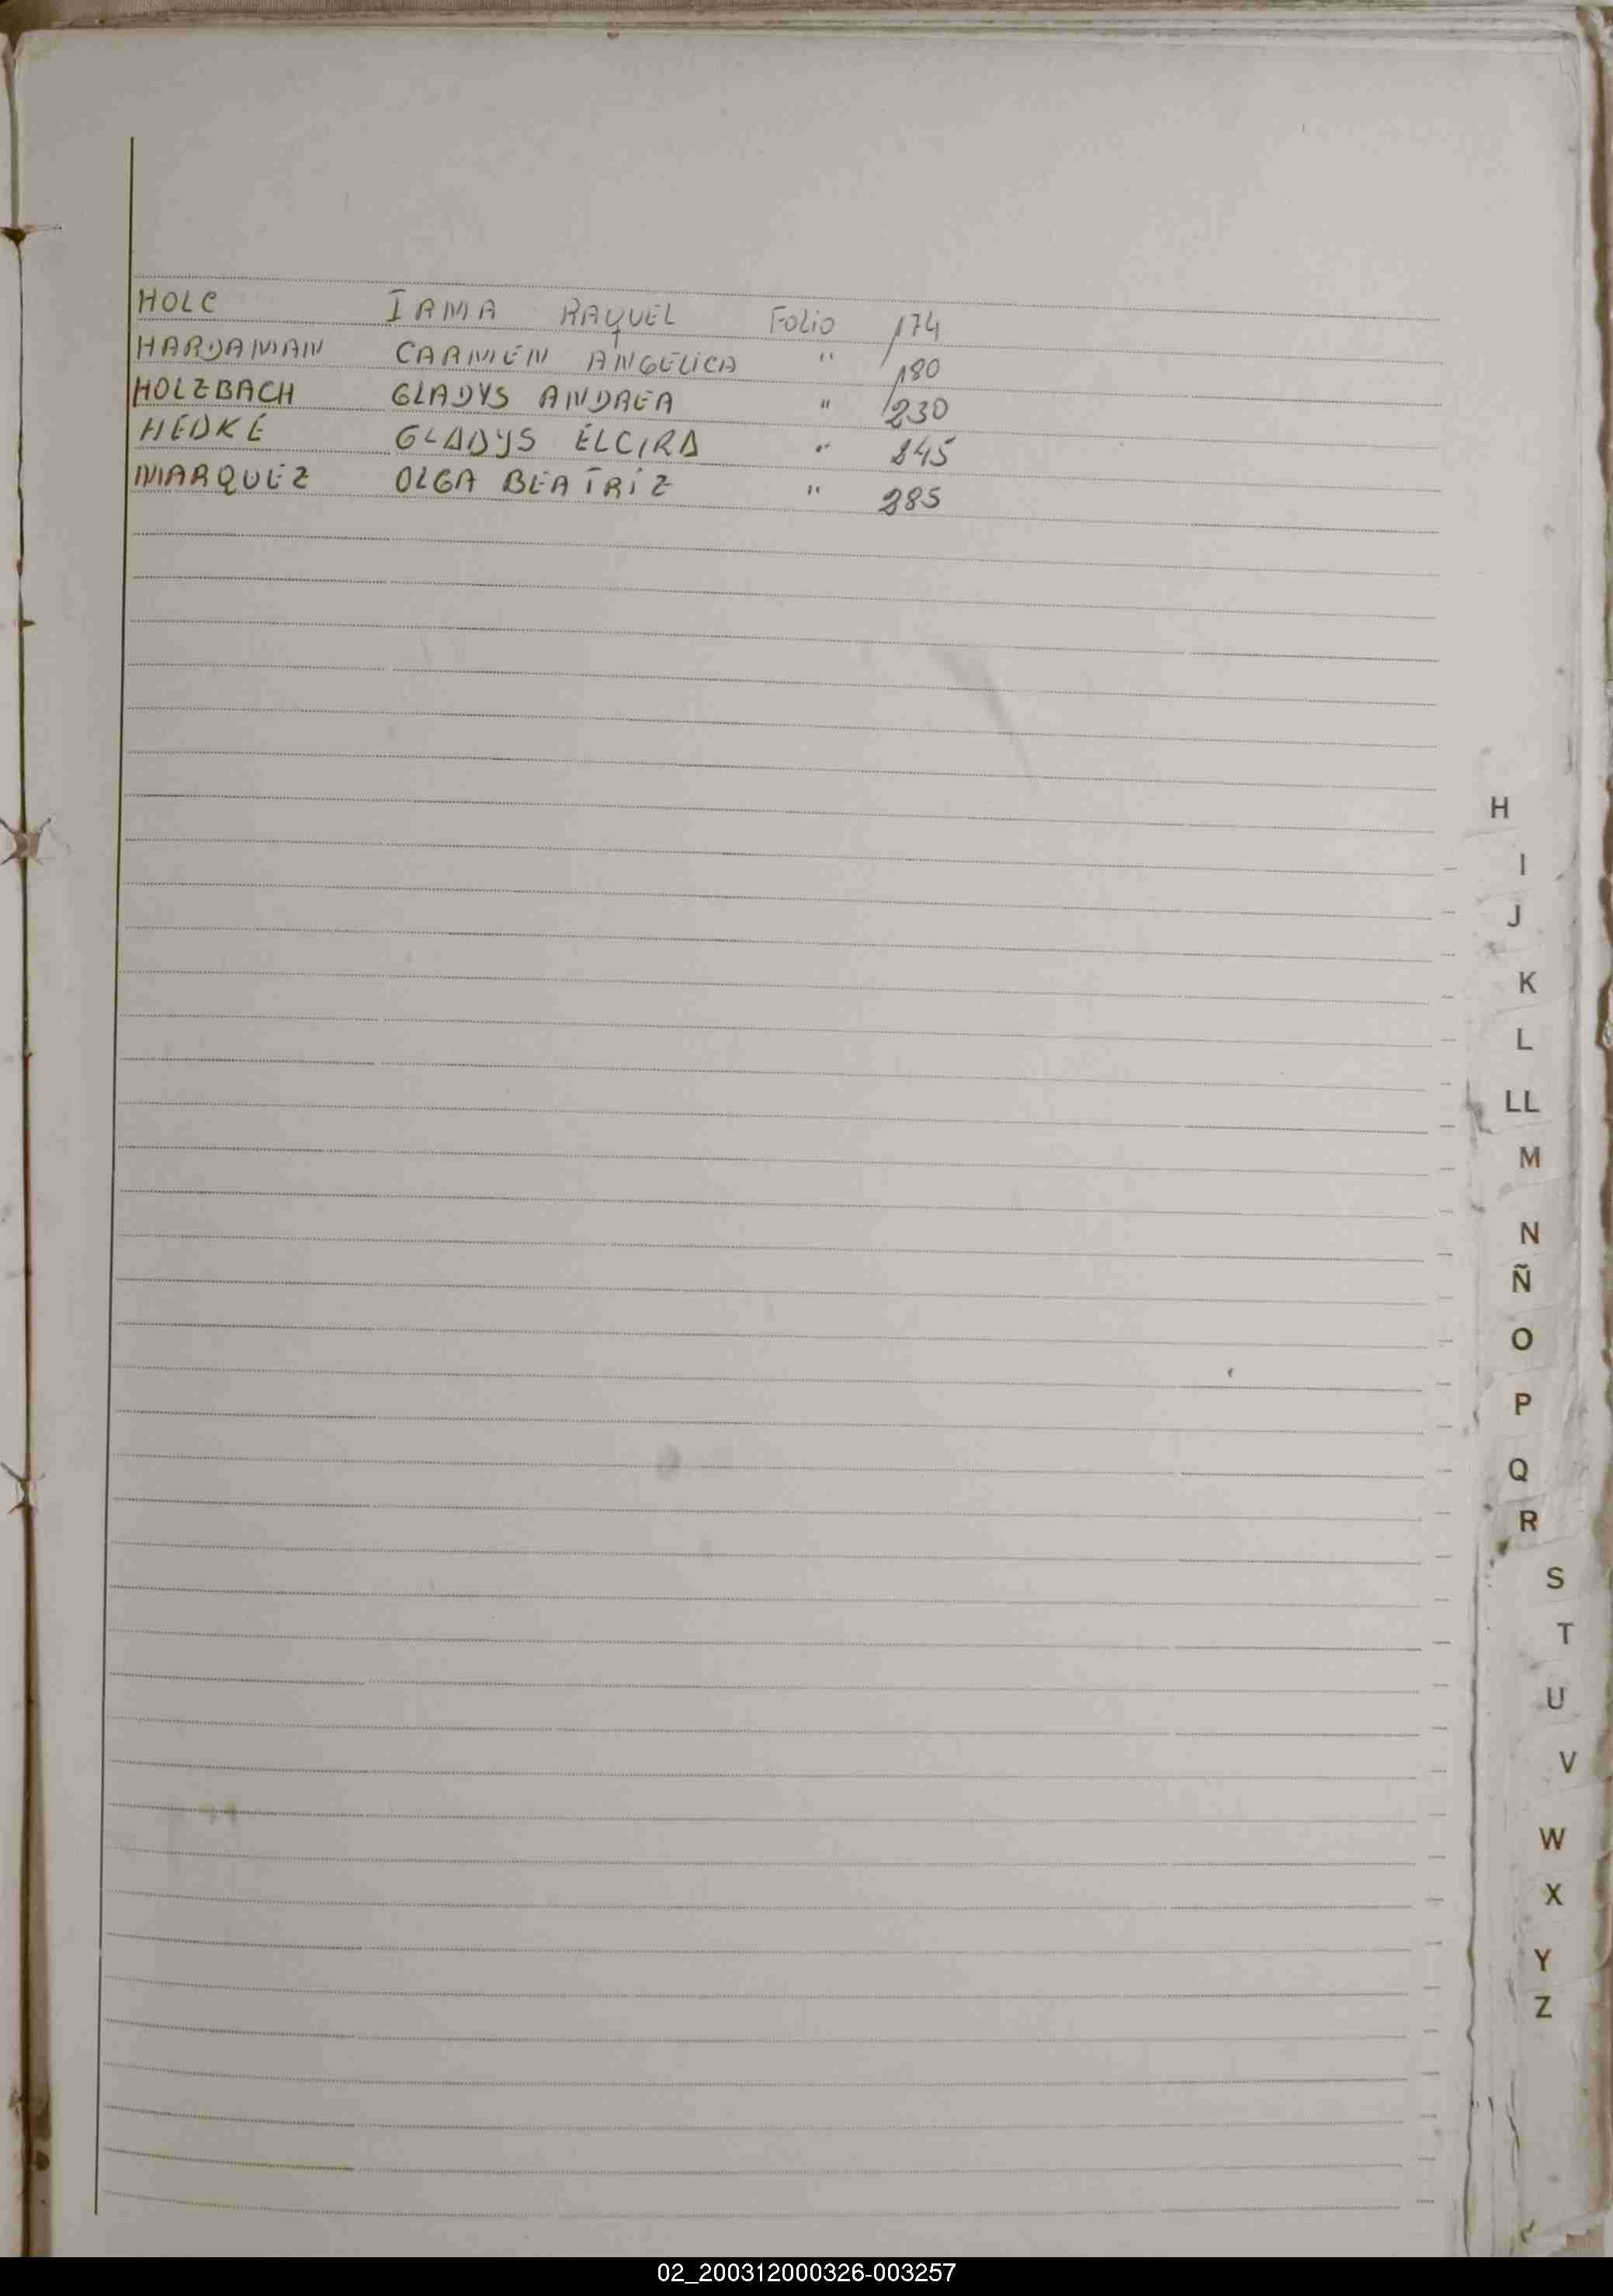 HOLC IRMA RAQUEL Folio 174
HARDAMAN CARMEN ANGELICA " 180
HOLZBACH GLADYS ANDREA " 230
HEDKE GLADYS ELCIRA " 245
MARQUEZ OLGA BEATRIZ " 285
H
I
J
K
L
LL
M
N
Ñ
O
P
Q
R
S
T
U
V
W
X
Y
Z
02_200312000326-003257